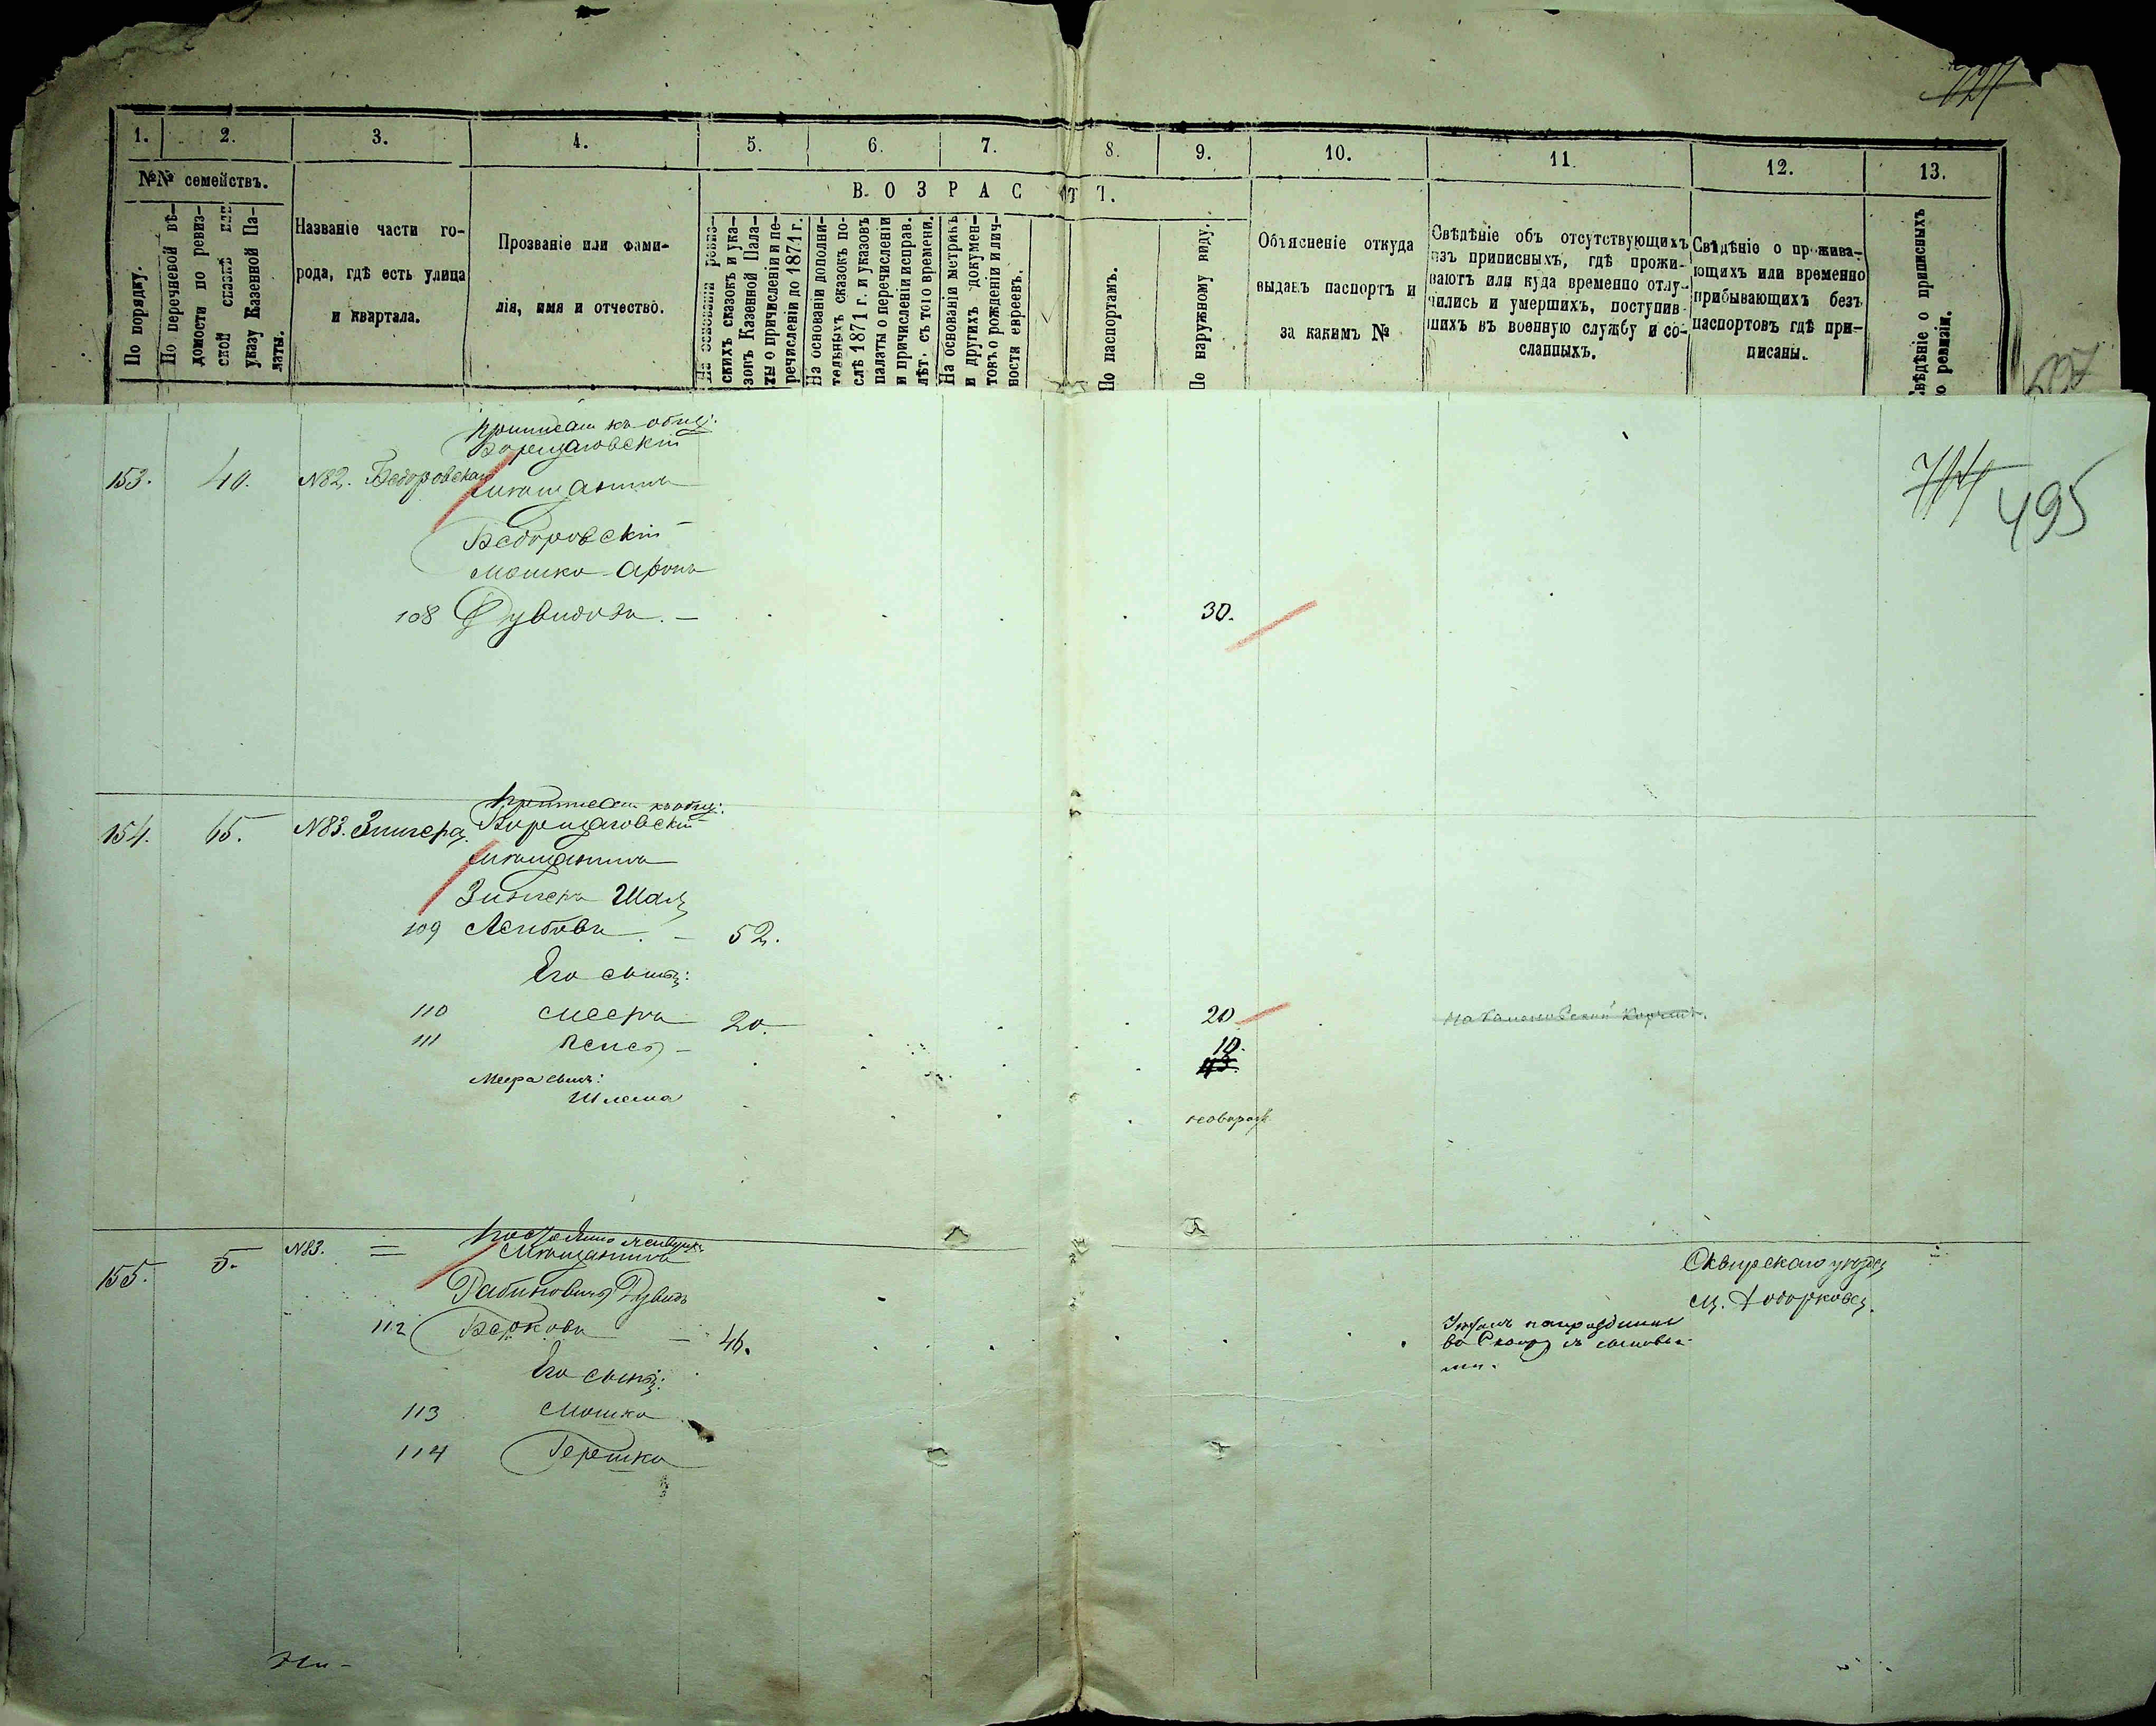 727
1. 2. 3. 4. 5. 6. 7. 8. 9. 10. 11. 12. 13.
№№ семействъ.
В О З Р А С Т Ъ.
По порядку.
По перечневой вѣ-
домости по ревиз-
ской сказкѣ или
указу Казенной Па-
латы.
Названіе части го-
рода, гдѣ есть улица
и квартала.
Прозваніе или фами-
лія, имя и отчество.
На основаніи ревиз-
скихъ сказокъ и ука-
зокъ Казенной Пала-
ты о причисленіи и пе-
речисленіи до 1871 г.
На основаніи дополни-
тельныхъ сказокъ по-
слѣ 1871 г. и указовъ
палаты о перечисленіи
и причисленіи исправ.
лѣт. съ того времени.
На основаніи метрикъ
и другихъ докумен-
товъ о рожденіи и лич-
ности евреевъ.
По паспортамъ.
По наружному виду.
Объясненіе откуда
выданъ паспортъ и
за какимъ №
Свѣдѣніе объ отсутствующихъ
изъ приписныхъ, гдѣ прожи-
ваютъ или куда временно отлу-
чились и умершихъ, поступив-
шихъ въ военную службу и со-
сланныхъ.
Свѣдѣніе о прожива-
ющихъ или временно
прибывающихъ безъ
паспортовъ гдѣ при-
писаны.
Свѣдѣніе о приписныхъ
по ревизіи.
497
495
приписан къ общ:
Борщаговскій
153. 40. №82. Бедоровская мѣщанинъ
Бедоровскій
Мошко Аронъ
108 Дувидовъ. — 30.
приписан къ общ:
154. 65. №83. Зингера. Борщаговскій
мѣщанинъ
Зингеръ Шая
109 Лейбовъ. — 52.
Его сыны:
110 Мееръ 20. 20
111 Пейсъ — 10.
Меера сынъ:
Шлема
155. 5. №83. =
мѣщанинъ
Рабиновичъ Дувидъ
112 Берковъ — 46.
Его сыны:
113 Мошко
114 Гершко
Сквирскаго уѣзда
м. Ходоркова.